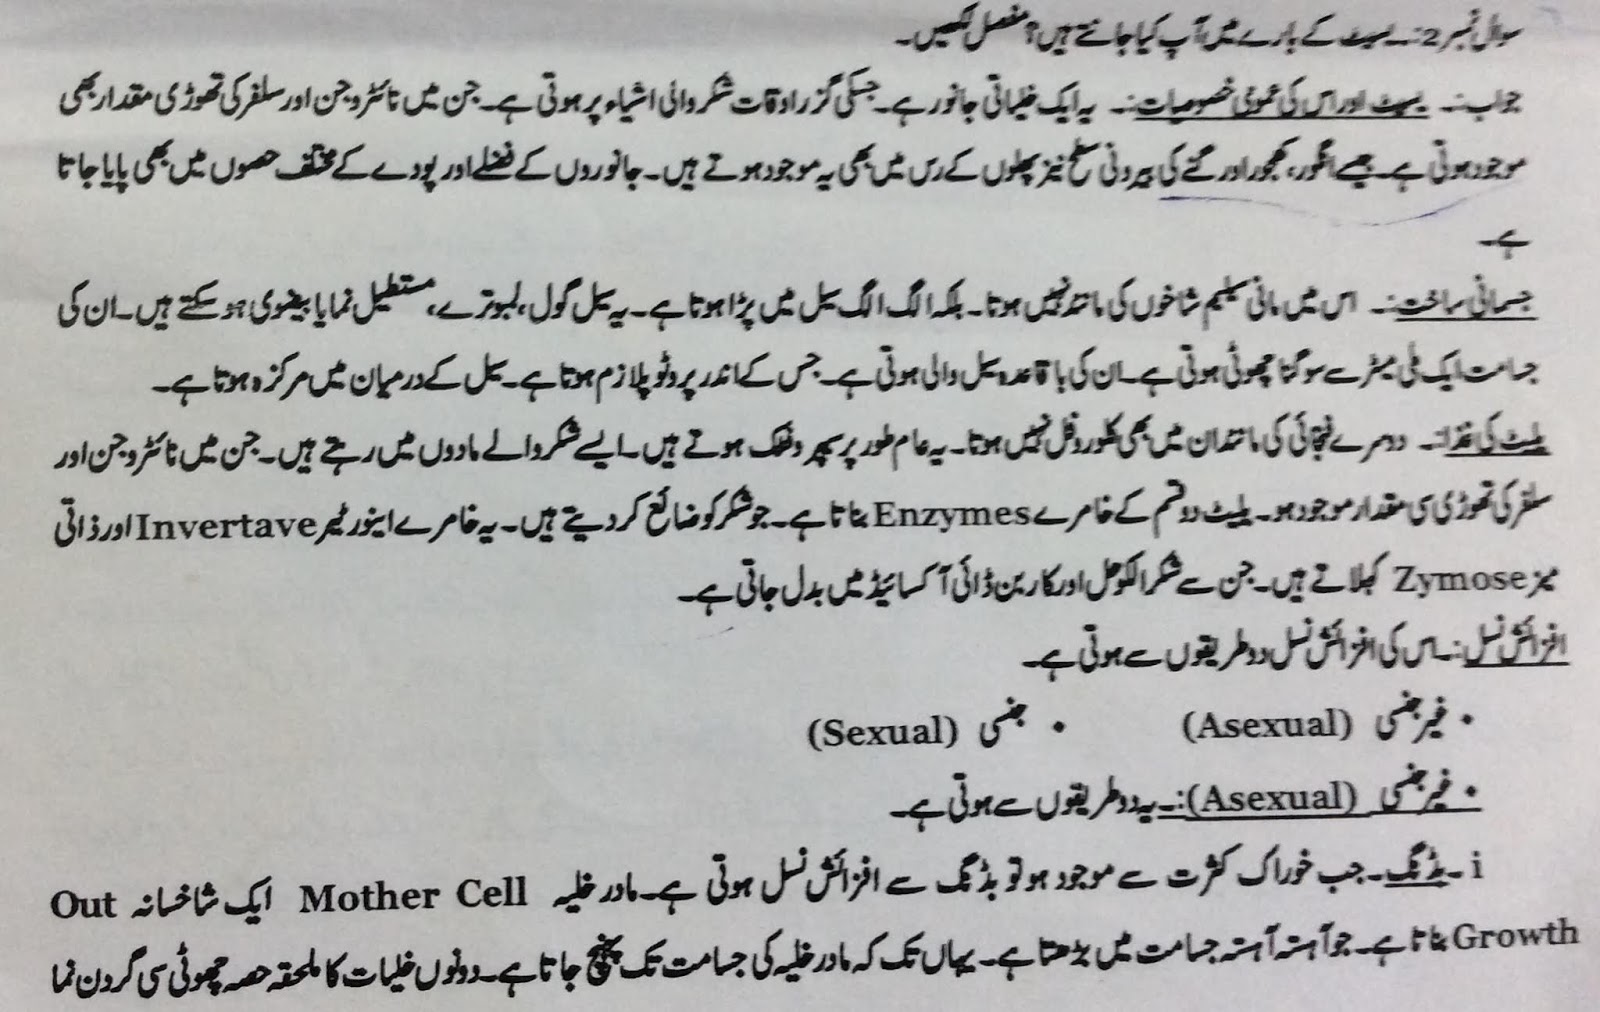 سوال نمبر2:۔ ییسٹ کے بارے میں آپ کیا جانتے ہیں؟ مفصل لکھیں۔
جواب:۔ ییسٹ اور اس کی عمومی خصوصیات:۔ یہ ایک خلیاتی جانور ہے۔ جسکی گزر اوقات شکر والی اشیاء پر ہوتی ہے۔ جن میں نائٹروجن اور سلفر کی تھوڑی مقدار بھی
موجود ہوتی ہے۔ جیسے انگور، کھجور اور گنے کی بیرونی سطح نیز پھلوں کے رس میں بھی یہ موجود ہوتے ہیں۔ جانوروں کے فضلے اور پودے کے مختلف حصوں میں بھی پایا جاتا
ہے۔
جسمانی ساخت:۔ اس میں مائی سیلیم شاخوں کی مانند نہیں ہوتا۔ بلکہ الگ الگ سیل میں پڑا ہوتا ہے۔ یہ سیل گول، لمبوترے، مستطیل نما یا بیضوی ہو سکتے ہیں۔ ان کی
جسامت ایک ملی میٹر سے سو گنا چھوٹی ہوتی ہے۔ ان کی باقاعدہ سیل والی ہوتی ہے۔ جس کے اندر پروٹوپلازم ہوتا ہے۔ سیل کے درمیان میں مرکزہ ہوتا ہے۔
ییسٹ کی غذا:۔ دوسرے فنجائی کی مانند ان میں بھی کلوروفل نہیں ہوتا۔ یہ عام طور پر سیپروفیٹک ہوتے ہیں۔ ایسے شکر والے مادوں میں رہتے ہیں۔ جن میں نائٹروجن اور
سلفر کی تھوڑی سی مقدار موجود ہو۔ ییسٹ دو قسم کے خامرے Enzymes بناتا ہے۔ جو شکر کو ضائع کر دیتے ہیں۔ یہ خامرے اینورٹیز Invertave اور زائی
میز Zymose کہلاتے ہیں۔ جن سے شکر الکوحل اور کاربن ڈائی آکسائیڈ میں بدل جاتی ہے۔
افزائش نسل:۔ اس کی افزائش نسل دو طریقوں سے ہوتی ہے۔
• غیر جنسی (Asexual) • جنسی (Sexual)
• غیر جنسی (Asexual):۔ یہ دو طریقوں سے ہوتی ہے۔
i ۔ بڈنگ۔ جب خوراک کثرت سے موجود ہو تو بڈنگ سے افزائش نسل ہوتی ہے۔ مادر خلیہ Mother Cell ایک شاخسانہ Out
Growth بناتا ہے۔ جو آہستہ آہستہ جسامت میں بڑھتا ہے۔ یہاں تک کہ مادر خلیہ کی جسامت تک پہنچ جاتا ہے۔ دونوں خلیات کا ملحقہ حصہ چھوٹی سی گردن نما